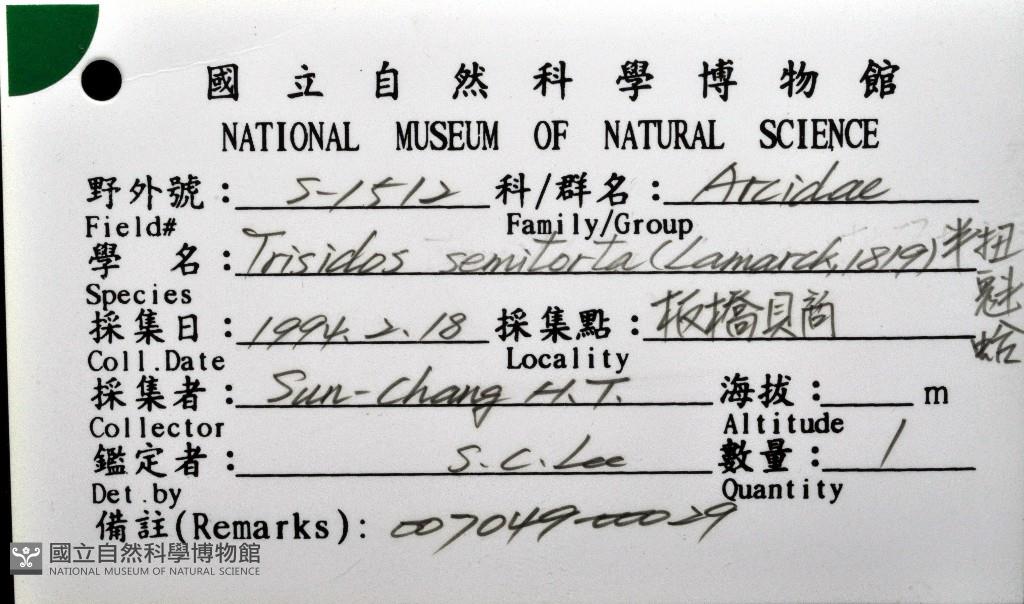 國立自然科學博物館
NATIONAL MUSEUM OF NATURAL SCIENCE
野外號: S-1512 科/群名: Arcidae
Field# Family/Group
學 名: Trisidos semitorta (Lamarck, 1819) 半扭魁蛤
Species
採集日: 1994.2.18 採集點: 板橋貝商
Coll.Date Locality
採集者: Sun-Chang H.T. 海拔: m
Collector Altitude
鑑定者: S.C. Lee 數量: 1
Det.by Quantity
備註(Remarks): 007049-00029
國立自然科學博物館
NATIONAL MUSEUM OF NATURAL SCIENCE